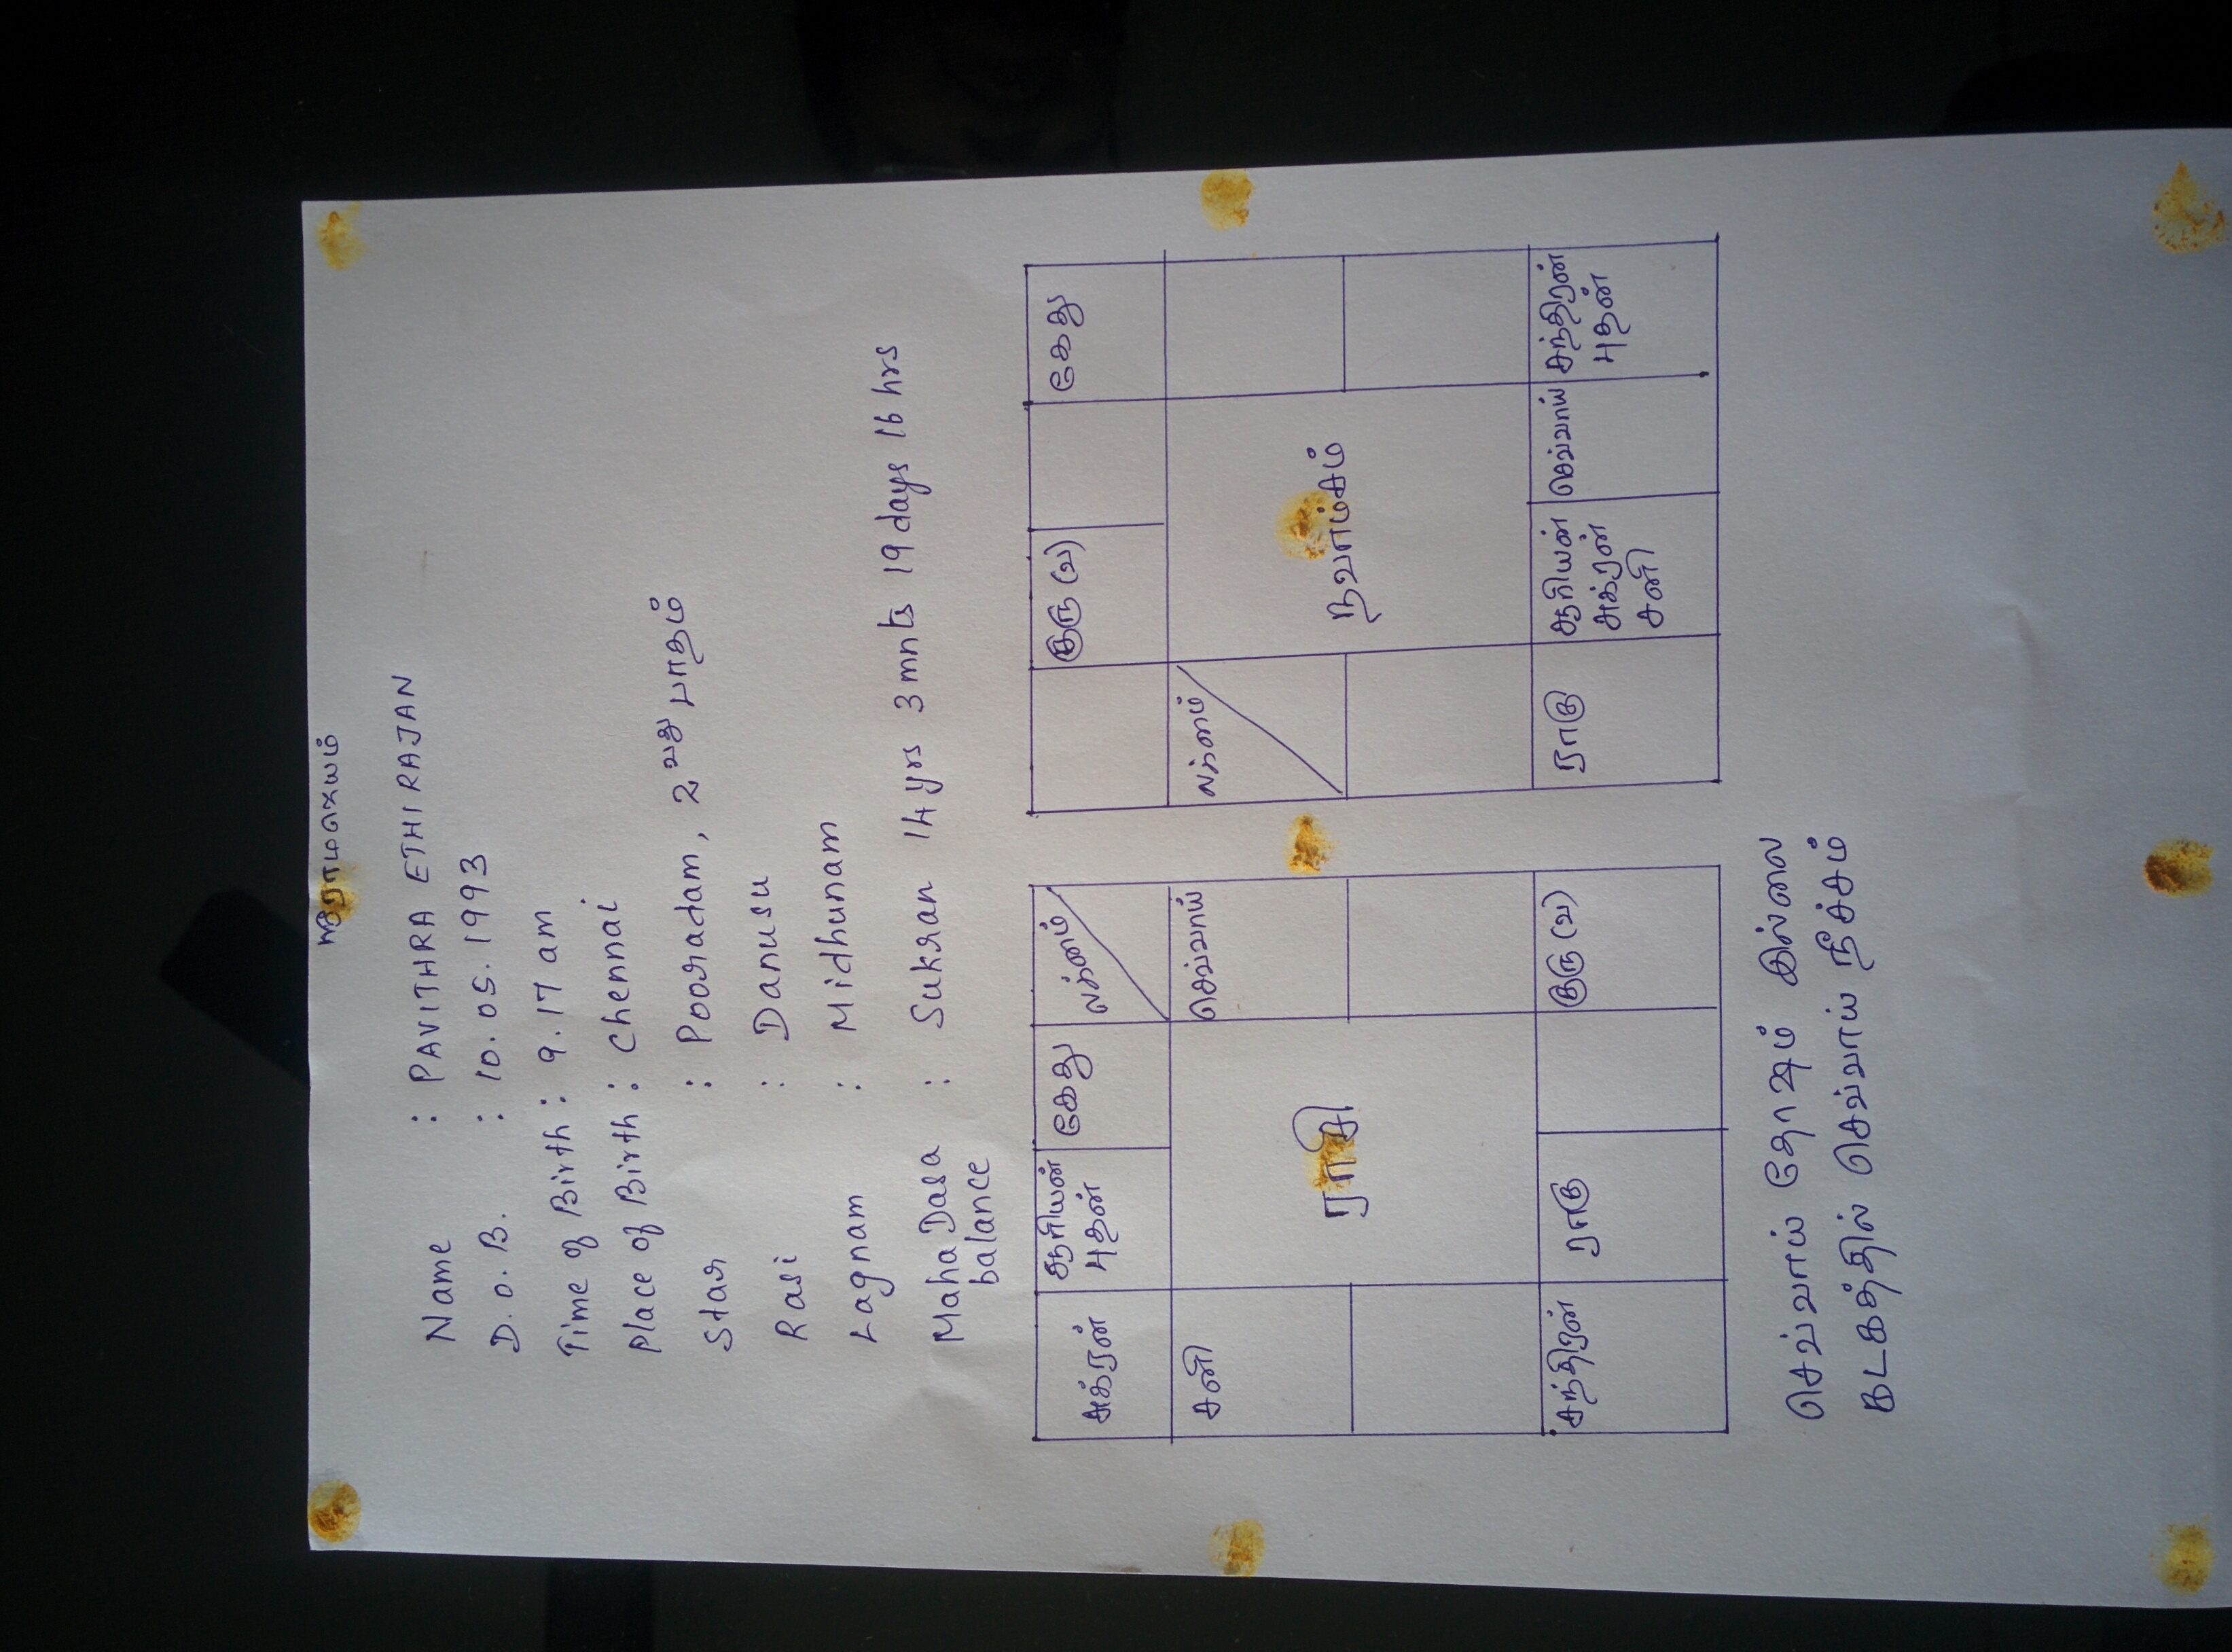 ஸ்ரீராமஜெயம்
Name : PAVITHRA ETHIRAJAN
D.O.B. : 10.05.1993
Time of Birth : 9.17 am
Place of Birth : Chennai
Star : Pooradam, 2வது பாதம்
Rasi : Danusu
Lagnam : Midhunam
Maha Dasa balance : Sukran 14 yrs 3 mnts 19 days 16 hrs
சுக்ரன்
சூரியன்
புதன்
கேது
லக்னம்
சனி
செவ்வாய்
ராசி
சந்திரன்
ராகு
குரு (வ)
குரு (வ)
கேது
லக்னம்
நவாம்சம்
ராகு
சூரியன்
சுக்ரன்
சனி
செவ்வாய்
சந்திரன்
புதன்
செவ்வாய் தோஷம் இல்லை
கடகத்தில் செவ்வாய் நீச்சம்